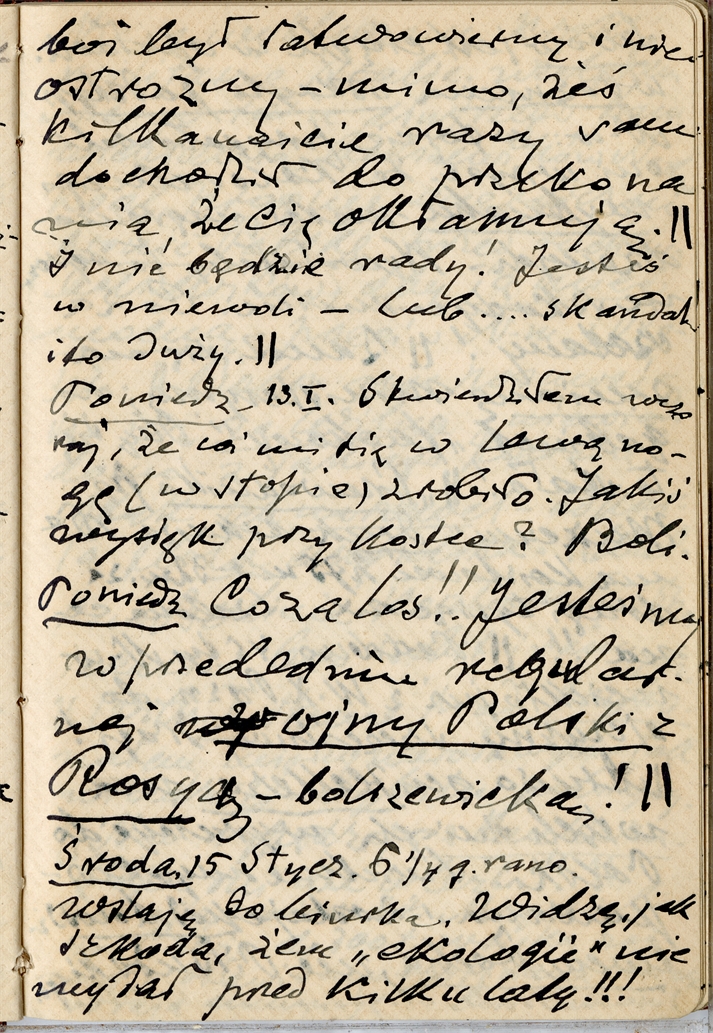 boś był łatwowierny i nie-
ostrożny – mimo, żeś
kilkanaście razy sam
dochodził do przekona
nia że cię okłamują. ||
I nie będzie rady! Jesteś
w niewoli – lub .... skandal
i to duży. ||
Poniedz. 13.I. Stwierdziłem wczo
raj, że coś mi się w lewą no-
gę (w stopie) zrobiło. Jakiś
wysięk przy kostce? Boli.
Poniedz Co za los!! Jesteśmy
w przededniu regular-
nej wojny Polski z
Rosyą – bolszewicką! ||
Środa, 15 Stycz. 6 1/4 g. rano.
Wstaję do biurka. Widzę, jak
szkoda, żem „ekologii" nie
wydał przed kilku laty!!!